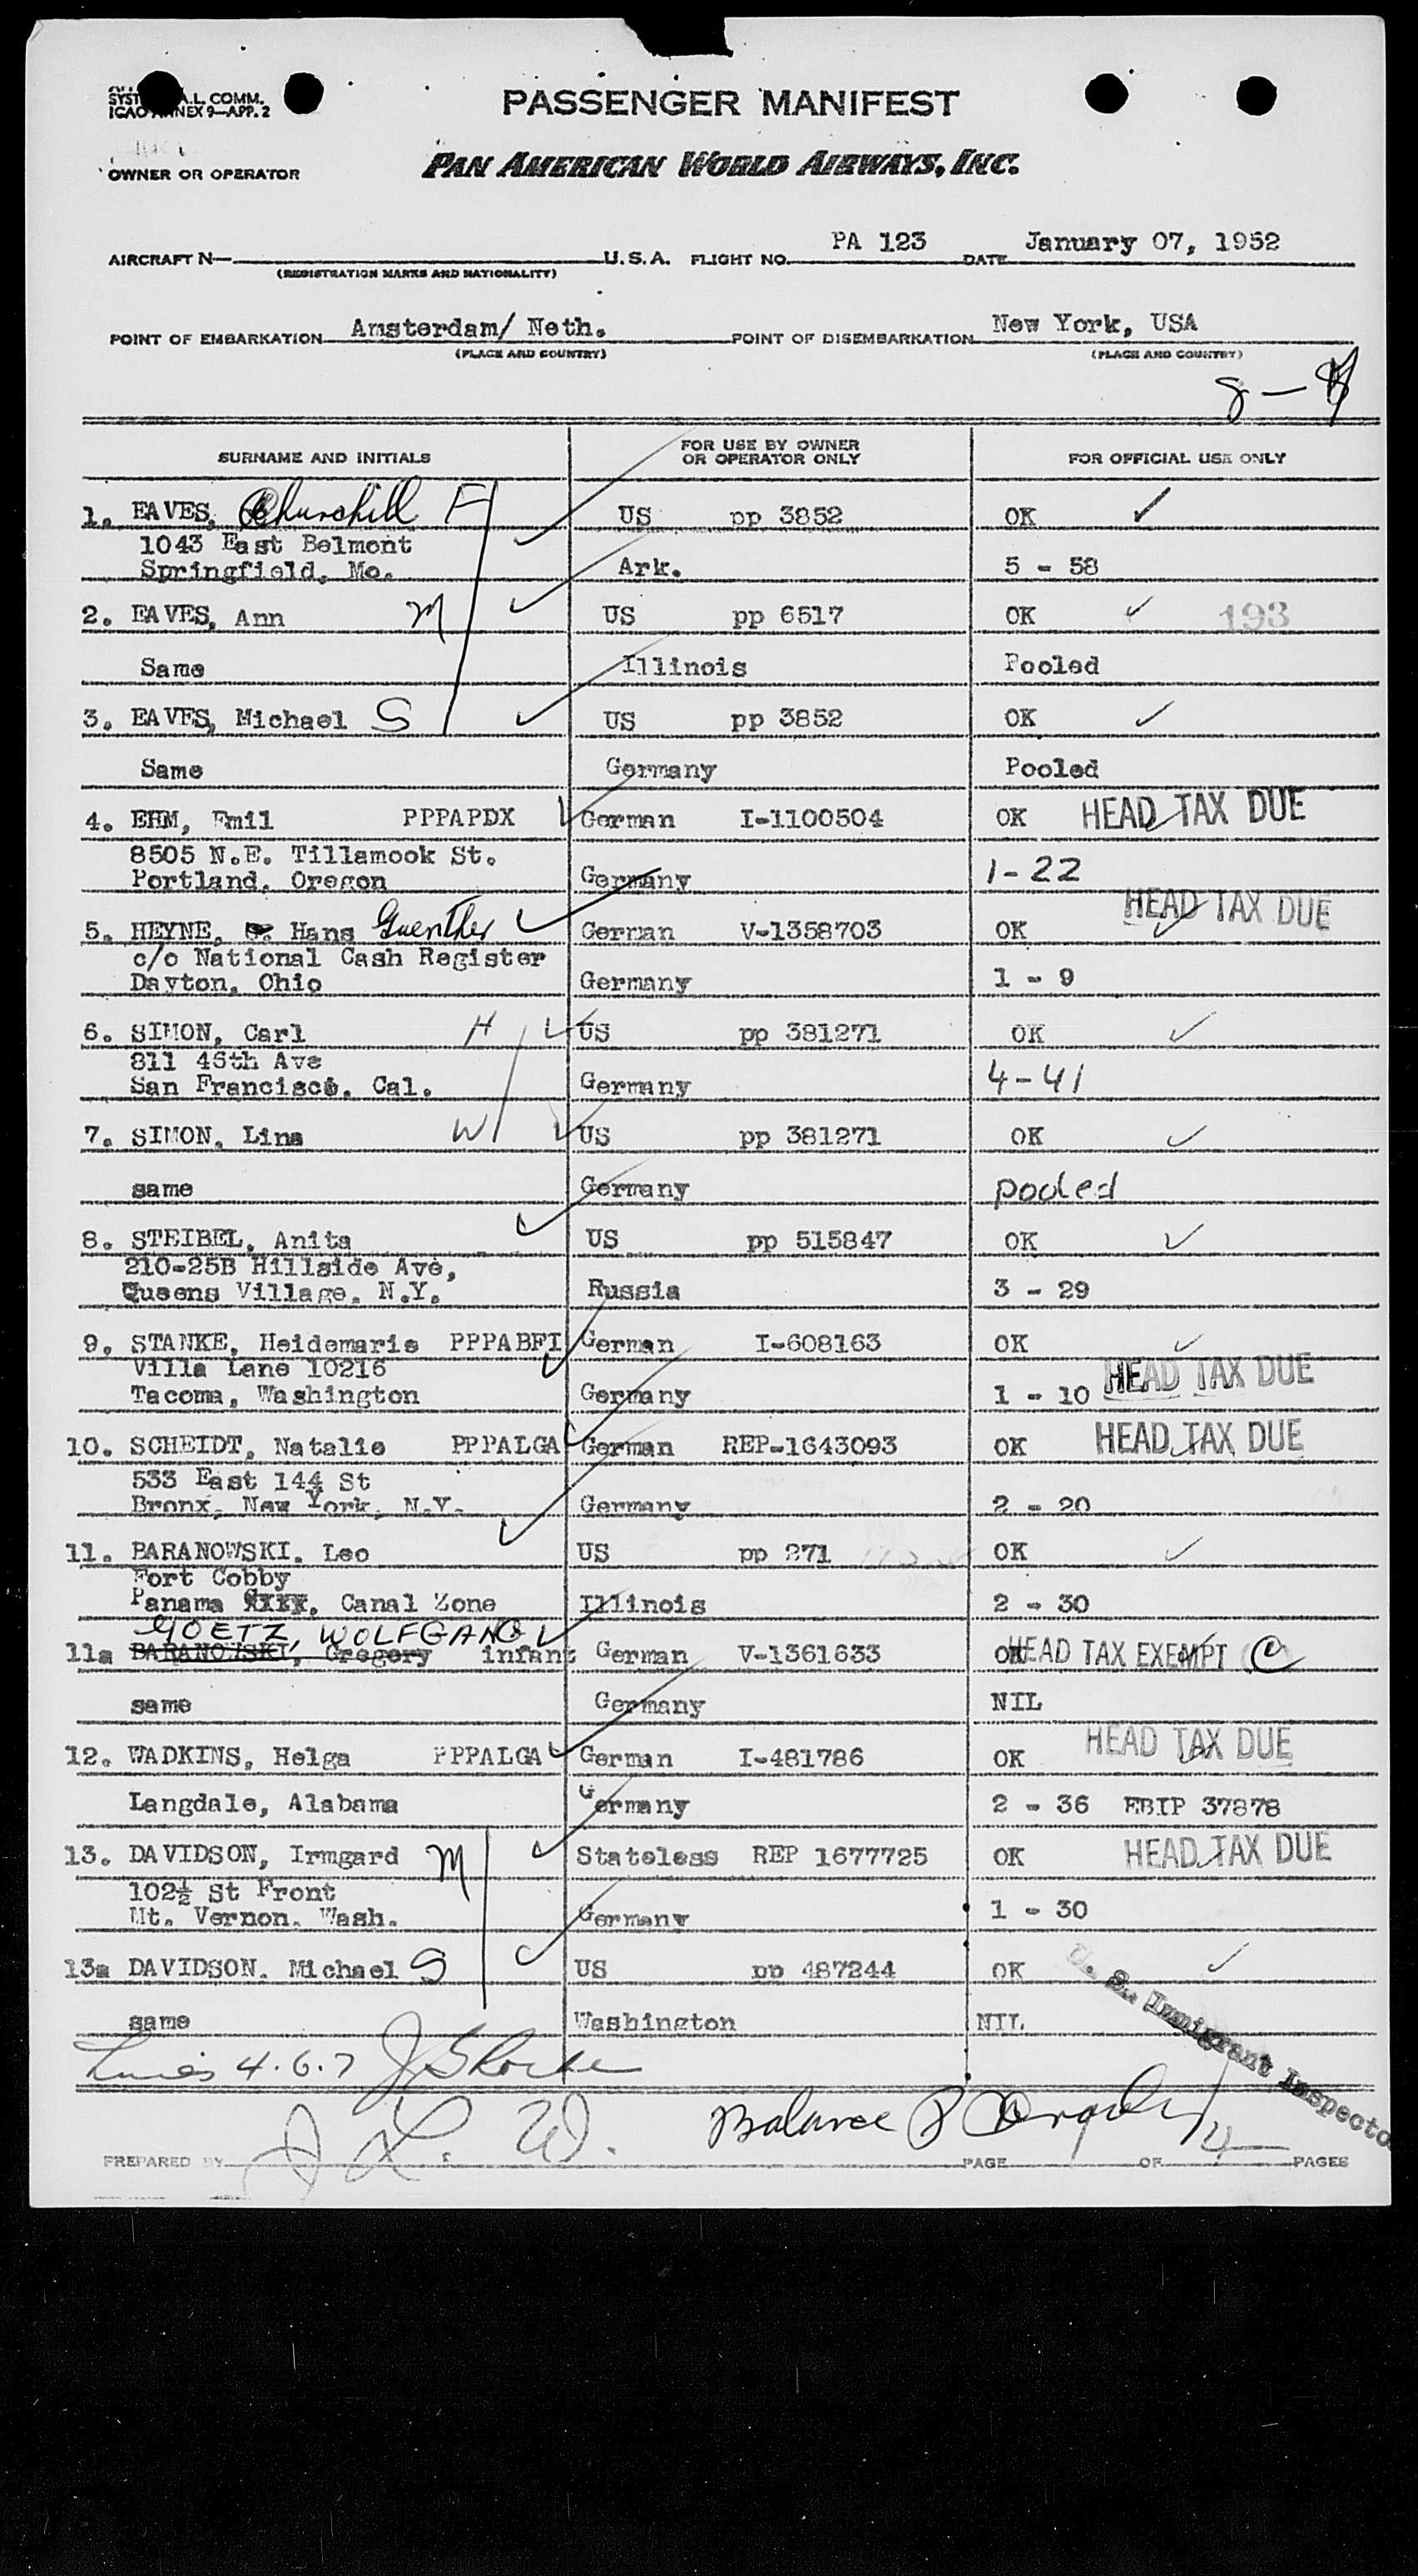 SYST A.L. COMM.
ICAO ANNEX 9—APP. 2
PASSENGER MANIFEST
OWNER OR OPERATOR
PAN AMERICAN WORLD AIRWAYS, INC.
AIRCRAFT N— U.S.A. FLIGHT NO. PA 123 DATE January 07, 1952
(REGISTRATION MARKS AND NATIONALITY)
POINT OF EMBARKATION Amsterdam/ Neth. POINT OF DISEMBARKATION New York, USA
(PLACE AND COUNTRY) (PLACE AND COUNTRY)
8 —
SURNAME AND INITIALS FOR USE BY OWNER OR OPERATOR ONLY FOR OFFICIAL USE ONLY
1. EAVES, Churchill F US pp 3852 OK ✓
1043 East Belmont
Springfield, Mo. Ark. 5 - 58
2. EAVES, Ann M US pp 6517 OK ✓ 193
Same Illinois Pooled
3. EAVES, Michael S US pp 3852 OK ✓
Same Germany Pooled
4. EHM, Emil PPPAPDX German I-1100504 OK HEAD TAX DUE
8505 N.E. Tillamook St.
Portland, Oregon Germany 1-22
5. HEYNE, Hans Guenther German V-1358703 OK HEAD TAX DUE
c/o National Cash Register
Dayton, Ohio Germany 1 - 9
6. SIMON, Carl H US pp 381271 OK ✓
811 46th Ave
San Francisco, Cal. Germany 4-41
7. SIMON, Lina W US pp 381271 OK ✓
same Germany pooled
8. STEIBEL, Anita US pp 515847 OK ✓
210-25B Hillside Ave,
Queens Village, N.Y. Russia 3 - 29
9. STANKE, Heidemarie PPPABFI German I-608163 OK ✓
Villa Lane 10216
Tacoma, Washington Germany 1 - 10 HEAD TAX DUE
10. SCHEIDT, Natalie PPPALGA German REP-1643093 OK HEAD TAX DUE
533 East 144 St
Bronx, New York, N.Y. Germany 2 - 20
11. BARANOWSKI, Leo US pp 271 OK ✓
Fort Cobby
Panama XXXX, Canal Zone Illinois 2 - 30
GOETZ, WOLFGANG
11a BARANOWSKI, Gregory infant German V-1361633 OK HEAD TAX EXEMPT C
same Germany NIL
12. WADKINS, Helga PPPALGA German I-481786 OK HEAD TAX DUE
Langdale, Alabama Germany 2 - 36 EBIP 37878
13. DAVIDSON, Irmgard M Stateless REP 1677725 OK HEAD TAX DUE
102½ St Front
Mt. Vernon, Wash. Germany 1 - 30
13a DAVIDSON, Michael S US pp 487244 OK ✓
same Washington NIL
U. S. Immigrant Inspecto
Lines 4.6.7
J L. W. Balance
PREPARED BY PAGE OF 4 PAGES